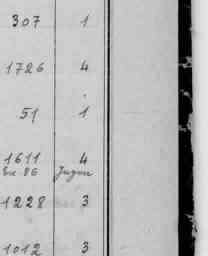 307 1
1726 4
51 1
1611 4
86
1228 3
1012 3